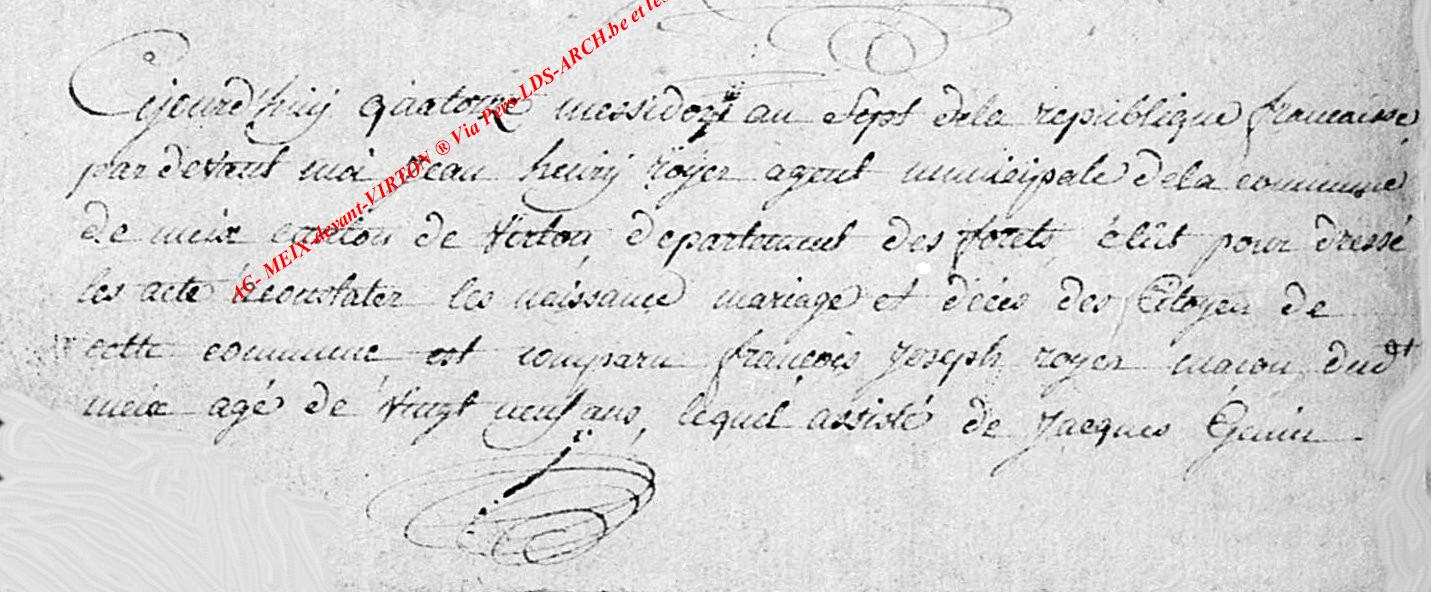 AG- MEIX-devant-VIRTON ® Via Pers-LDS-ARCH.be et les
Cejourd'huij quatorze messidor an Sept dela republique francaisse
par devant moi Jean henrij royer agent municipale dela commune
de meix canton de Virton departement des forets, élût pour dressé
les acte et constater les naissance mariage et décès des Citoyen de
cette commune est comparu francois Joseph royer macon dud
meix agé de Vingt neuf ans, lequel assisté de Jacques Genin